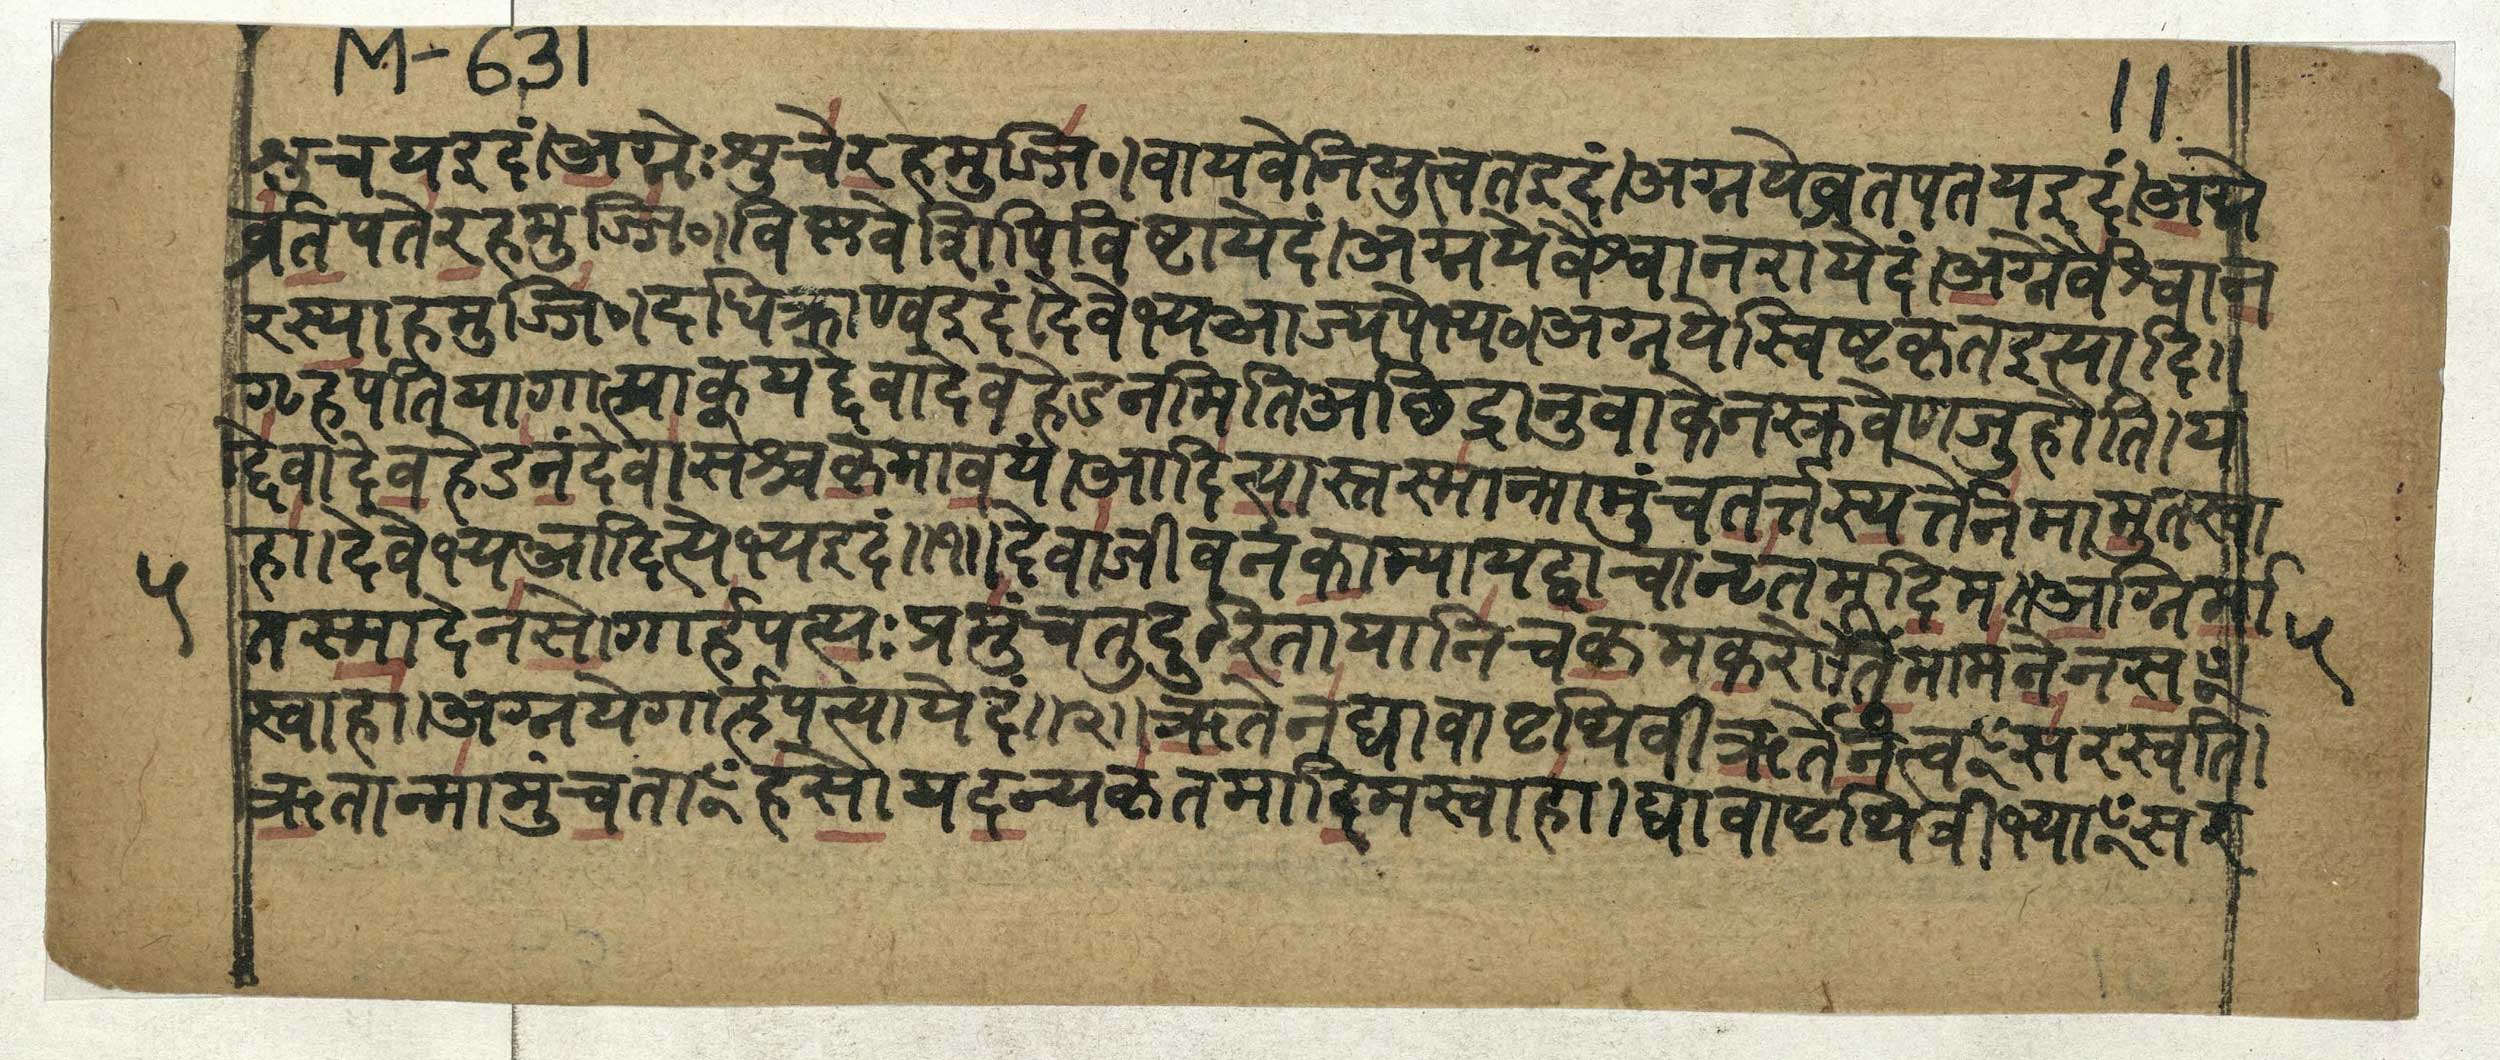 M-631
11
शुचयइदं।अग्नेःशुचेरहमुज्जि०।वायवेनियुत्वतइदं।अग्नयेव्रतपतयइदं।अग्ने
र्व्रतपतेरहमुज्जि०।विष्णवेशिपिविष्टायेदं।अग्नयेवैश्वानरायेदं।अग्नेर्वैश्वान
रस्याहमुज्जि०।दधिक्राव्ण्वइदं।देवेभ्यआज्यपेभ्य०।अग्नयेस्विष्टकृतइत्यादि।
गृहपतियागात्प्राक्यद्देवादेवहेडनमितिअछिद्रानुवाकेनस्रुवेणजुहोति।य
द्देवादेवहेडनंदेवासश्चकृमावयं।आदित्यास्तस्मान्मामुंचतर्त्तस्यर्त्तेनमामुतस्वा
हा।देवेभ्यआदित्येभ्यइदं॥१॥देवाजीवनकाम्यायद्वाचानृतमूदिम।अग्निर्मा
५
तस्मादेनसोगार्हपत्यःप्रमुंचतुदुरितायानिचकृमकरोतुमामनेनसꣳ
५
स्वाहा।अग्नयेगार्हपत्यायेदं॥२॥ऋतेनद्यावापृथिवीऋतेनत्वꣳसरस्वति।
ऋतान्मामुंचताꣳहसोयदन्यकृतमारिमस्वाहा।द्यावापृथिवीभ्याꣳसर